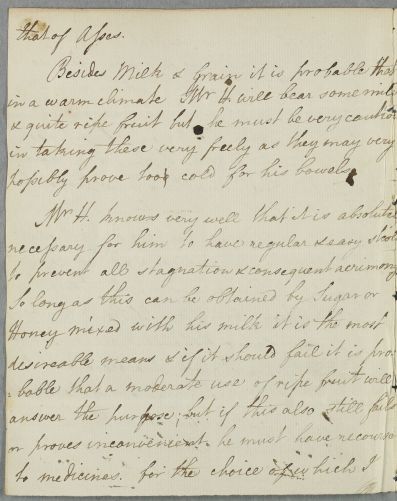 that of Asses.
Besides Milk & Grain it is probable that
in a warm climate Mr H. will bear some mild
& quite ripe fruit but he must be very cautious
in taking these very freely as they may very
possibly prove too cold for his bowels.
Mr H. knows very well that it is absolutely
necessary for him to have regular & easy Stools
to prevent all stagnation & consequent acrimony
So long as this can be obtained by Sugar or
Honey mixed with his milk it is the most
desireable means & if it should fail it is pro-
-bable that a moderate use of ripe fruit will
answer the purpose; but if this also still fails
or proves inconvenient he must have recourse
to medicines. for the choice of which I